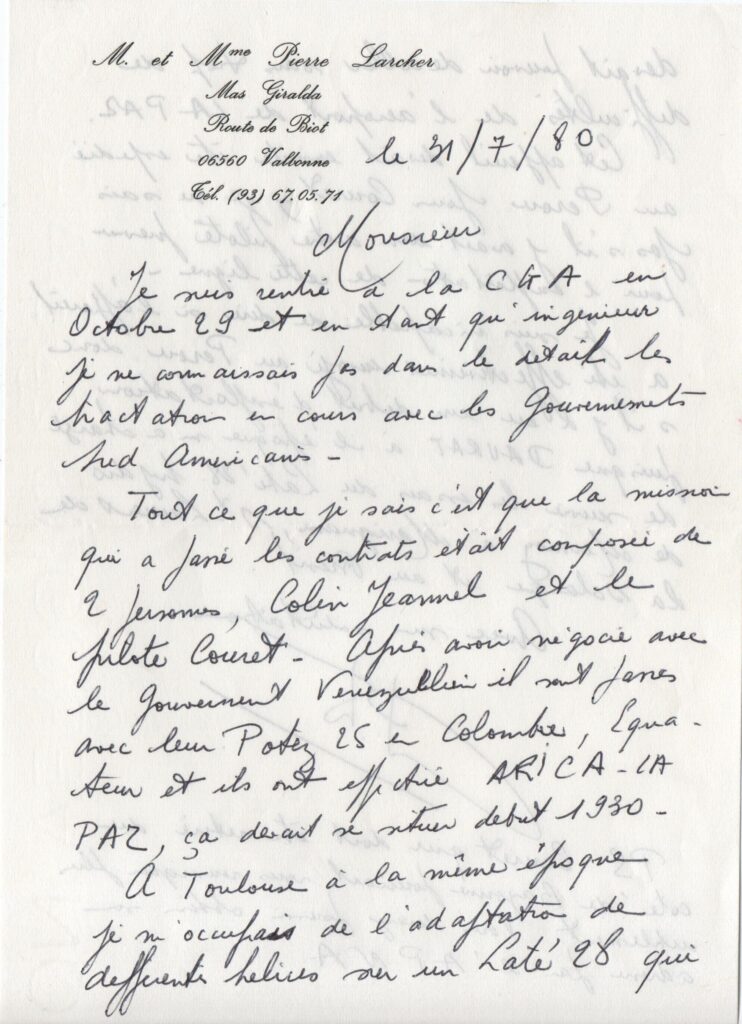 M. et Mme Pierre Larcher
Mas Giralda
Route de Biot
06560 Valbonne
Tél. (93) 67.05.71
le 31/7/80
Monsieur
Je suis rentré à la CGA en
Octobre 29 et en tant qu'ingenieur
je ne connaissais pas dans le detail les
tractations en cours avec les Gouvernements
Sud Americains -
Tout ce que je sais c'est que la mission
qui a passé les contrats était composée de
2 personnes, Colin Jeannel et le
pilote Couret - Après avoir négocié avec
le Gouvernement Venezuelien il sont passés
avec leur Potez 25 en Colombie, Equa-
teur et ils ont effectué ARICA - LA
PAZ, ça devait se situer debut 1930 -
A Toulouse à la même époque
je m'occupais de l'adaptation de
differentes helices sur un Laté 28 qui